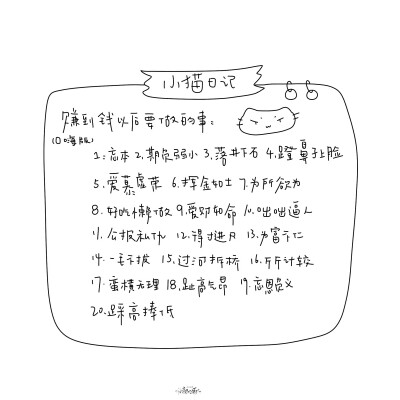 小猫日记
赚到钱以后要做的事：
(口嗨版)
1.忘本 2.期负弱小 3.落井下石 4.蹬鼻子上脸
5.爱慕虚荣 6.挥金如土 7.为所欲为
8.好吃懒做 9.爱财如命 10.咄咄逼人
11.公报私仇 12.得寸进尺 13.为富不仁
14.一毛不拔 15.过河拆桥 16.斤斤计较
17.蛮横无理 18.趾高气昂 19.忘恩负义
20.踩高捧低